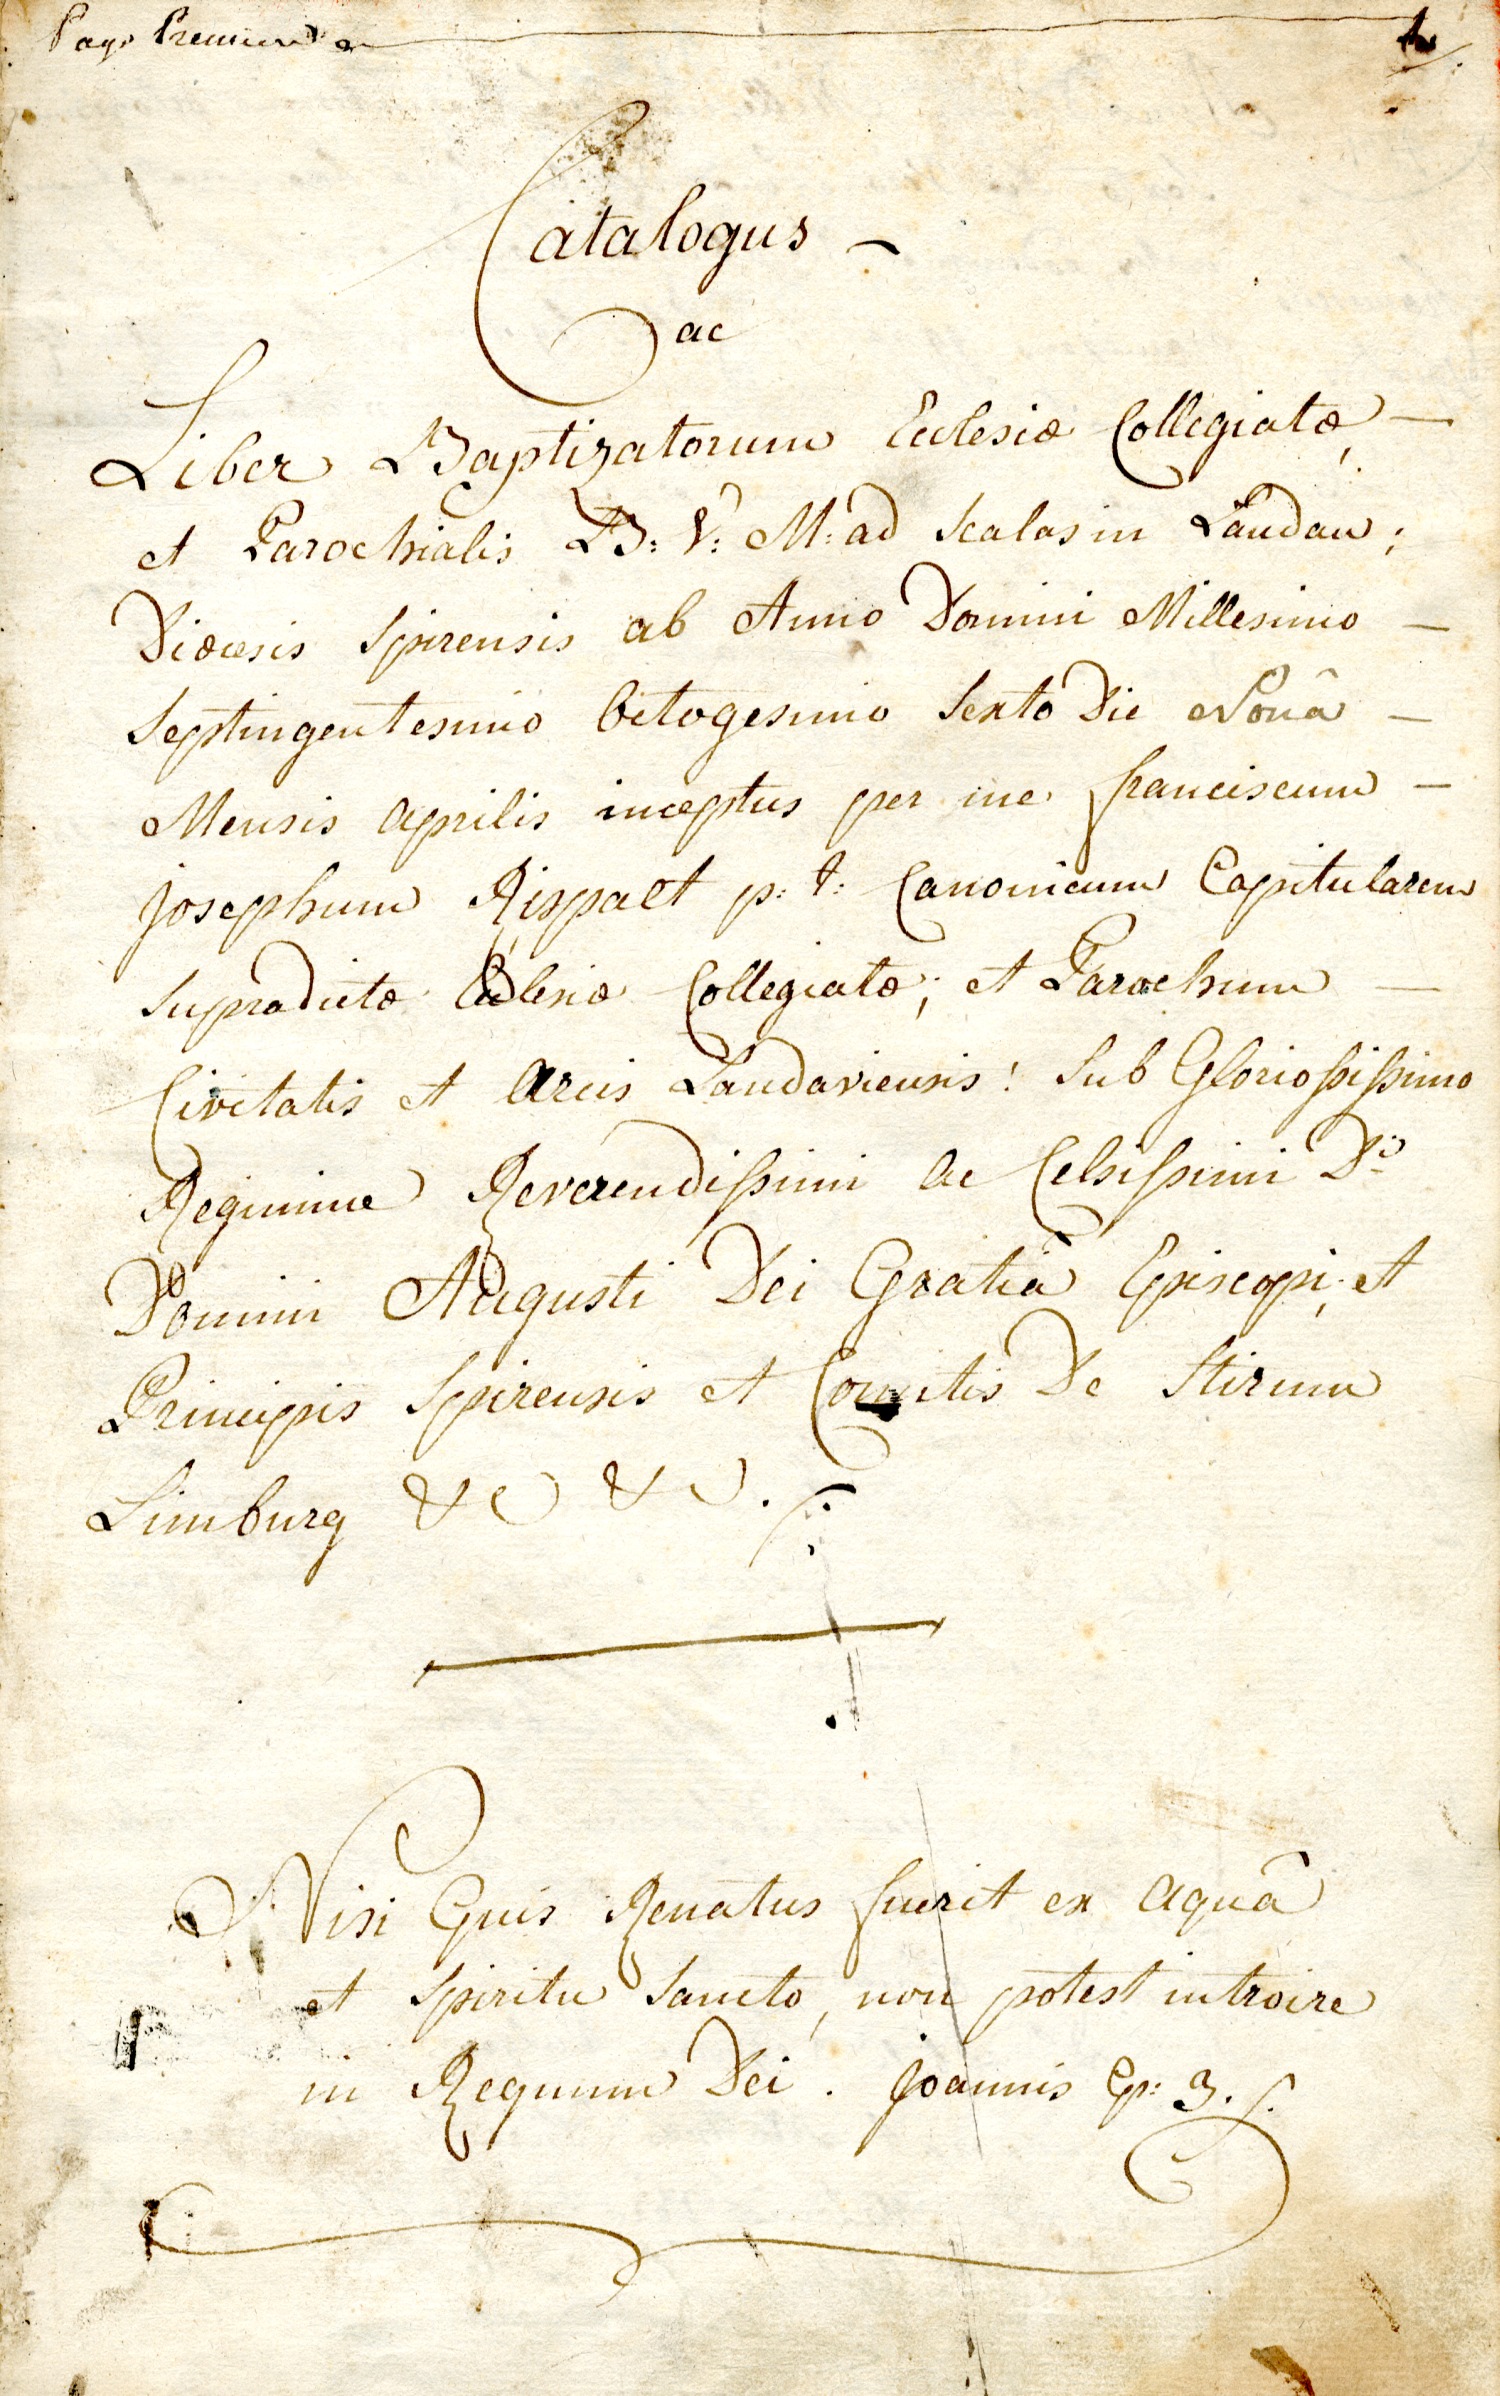 Page Premiere 1.
Catalogus –
ac
Liber Baptizatorum Ecclesiæ Collegiatæ, –
et Parochialis B: V: M: ad Scalas in Landau;
Diœcesis Spirensis ab Anno Domini Millesimo –
Septingentesimo Octogesimo Sexto Die Nonâ –
Mensis Aprilis inceptus per me franciscum –
Josephum Rispalt p: t: Canonicum Capitularem
Supradictæ Ecclesiæ Collegiatæ; et Parochum –
Civitatis et Arcis Landaviensis: Sub Gloriosissimo
Regimine Reverendissimi ac Celsissimi D:
Domini Augusti Dei Gratiâ Episcopi, et
Principis Spirensis et Comitis De Stirum
Limburg &c &c.
Nisi Quis Renatus fuerit ex Aquâ
et Spiritu Sancto, non potest introire
in Regnum Dei. Joannis Cp: 3.